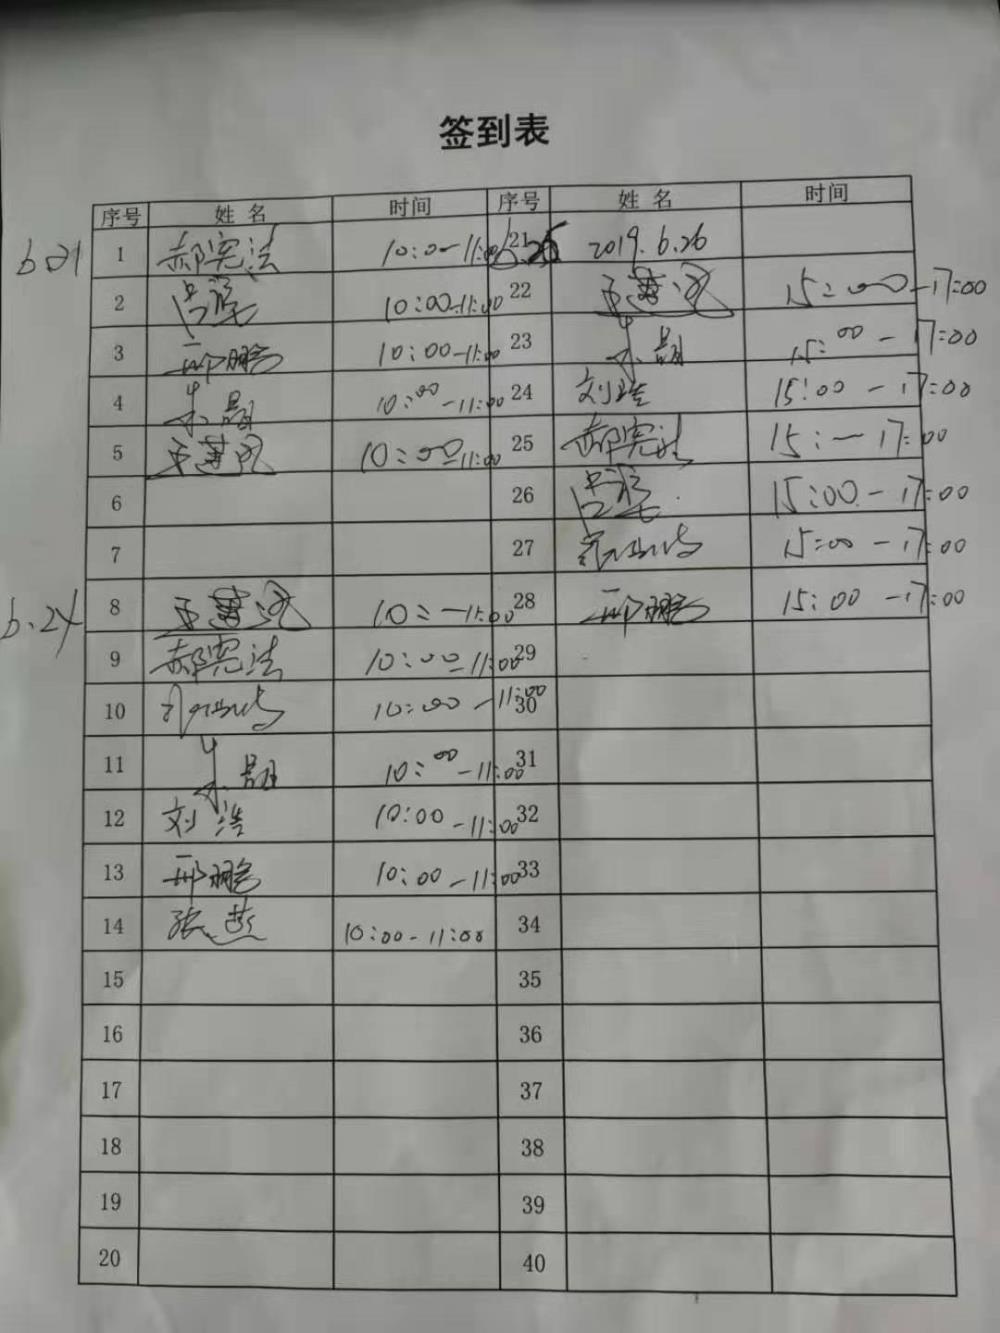 签到表
序号 姓 名 时间 序号 姓 名 时间
6.21 1 郝宪法 10:00-11:00 21 6.26 2019.6.26
2 吕梁 10:00-11:00 22 15:00-17:00
3 邢鹏 10:00-11:00 23 15:00-17:00
4 10:00-11:00 24 刘 15:00-17:00
5 10:00-11:00 25 郝宪法 15:-17:00
6 26 吕梁 15:00-17:00
7 27 15:00-17:00
6.24 8 10:-11:00 28 邢鹏 15:00-17:00
9 郝宪法 10:00-11:00 29
10 10:00-11:00 30
11 10:00-11:00 31
12 刘浩 10:00-11:00 32
13 邢鹏 10:00-11:00 33
14 张燕 10:00-11:00 34
15 35
16 36
17 37
18 38
19 39
20 40